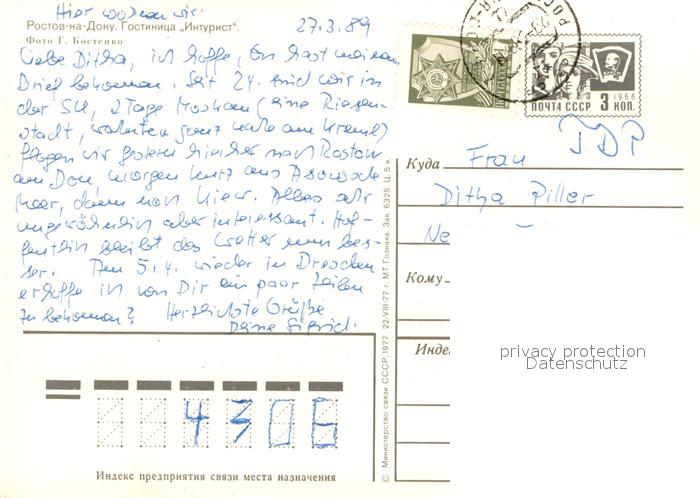 Hier wohnen wir.
Ростов-на-Дону. Гостиница „Интурист".
Фото Г. Костенко
27.3.89
Liebe Ditha, ich hoffe, Du hast meinen
Brief bekommen. Seit 24. sind wir in
der SU, 2 Tage Moskau (eine Riesen-
stadt, wohnten ganz nahe am Kreml)
flogen wir gestern hierher nach Rostow
am Don morgen kurz ans Asowsche
Meer, dann nach Kiew. Alles sehr
ungewöhnlich aber interessant. Hof-
fentlich bleibt das Wetter nun bes-
ser. Am 5.4. wieder in Dresden
erhoffe ich von Dir ein paar Zeilen
zu bekommen? Herzlichste Grüße
Deine
ПОЧТА СССР
1966
3 КОП.
Куда
Frau
Ditha Piller
Ne
Кому
Инде
privacy protection
Datenschutz
4306
Индекс предприятия связи места назначения
© Министерство связи СССР, 1977 22/VIII-77 г. МТ Гознака. Зак. 6325. Ц. 5 к.